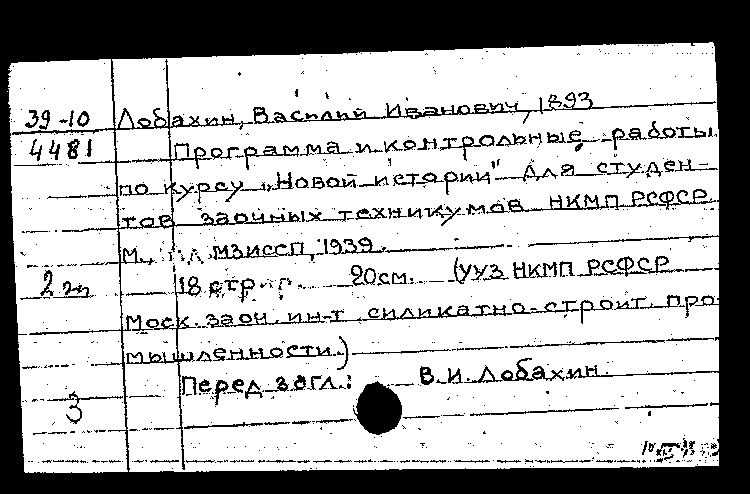 39-10 Лобахин, Василий Иванович, 1893
4481 Программа и контрольные работы
по курсу „Новой истории" для студен-
тов заочных техникумов НКМП РСФСР
М., МЗИССП, 1939.
2 эк 18 стр. 20см. (УУЗ НКМП РСФСР
Моск. заоч. ин-т силикатно-строит. про-
мышленности.)
Перед загл.: В. И. Лобахин.
3